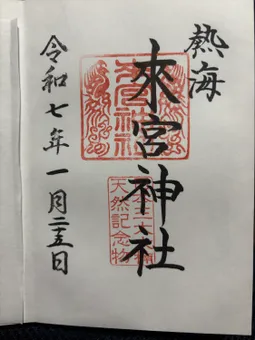 熱海
來宮神社
天然記念物
令和七年一月二五日